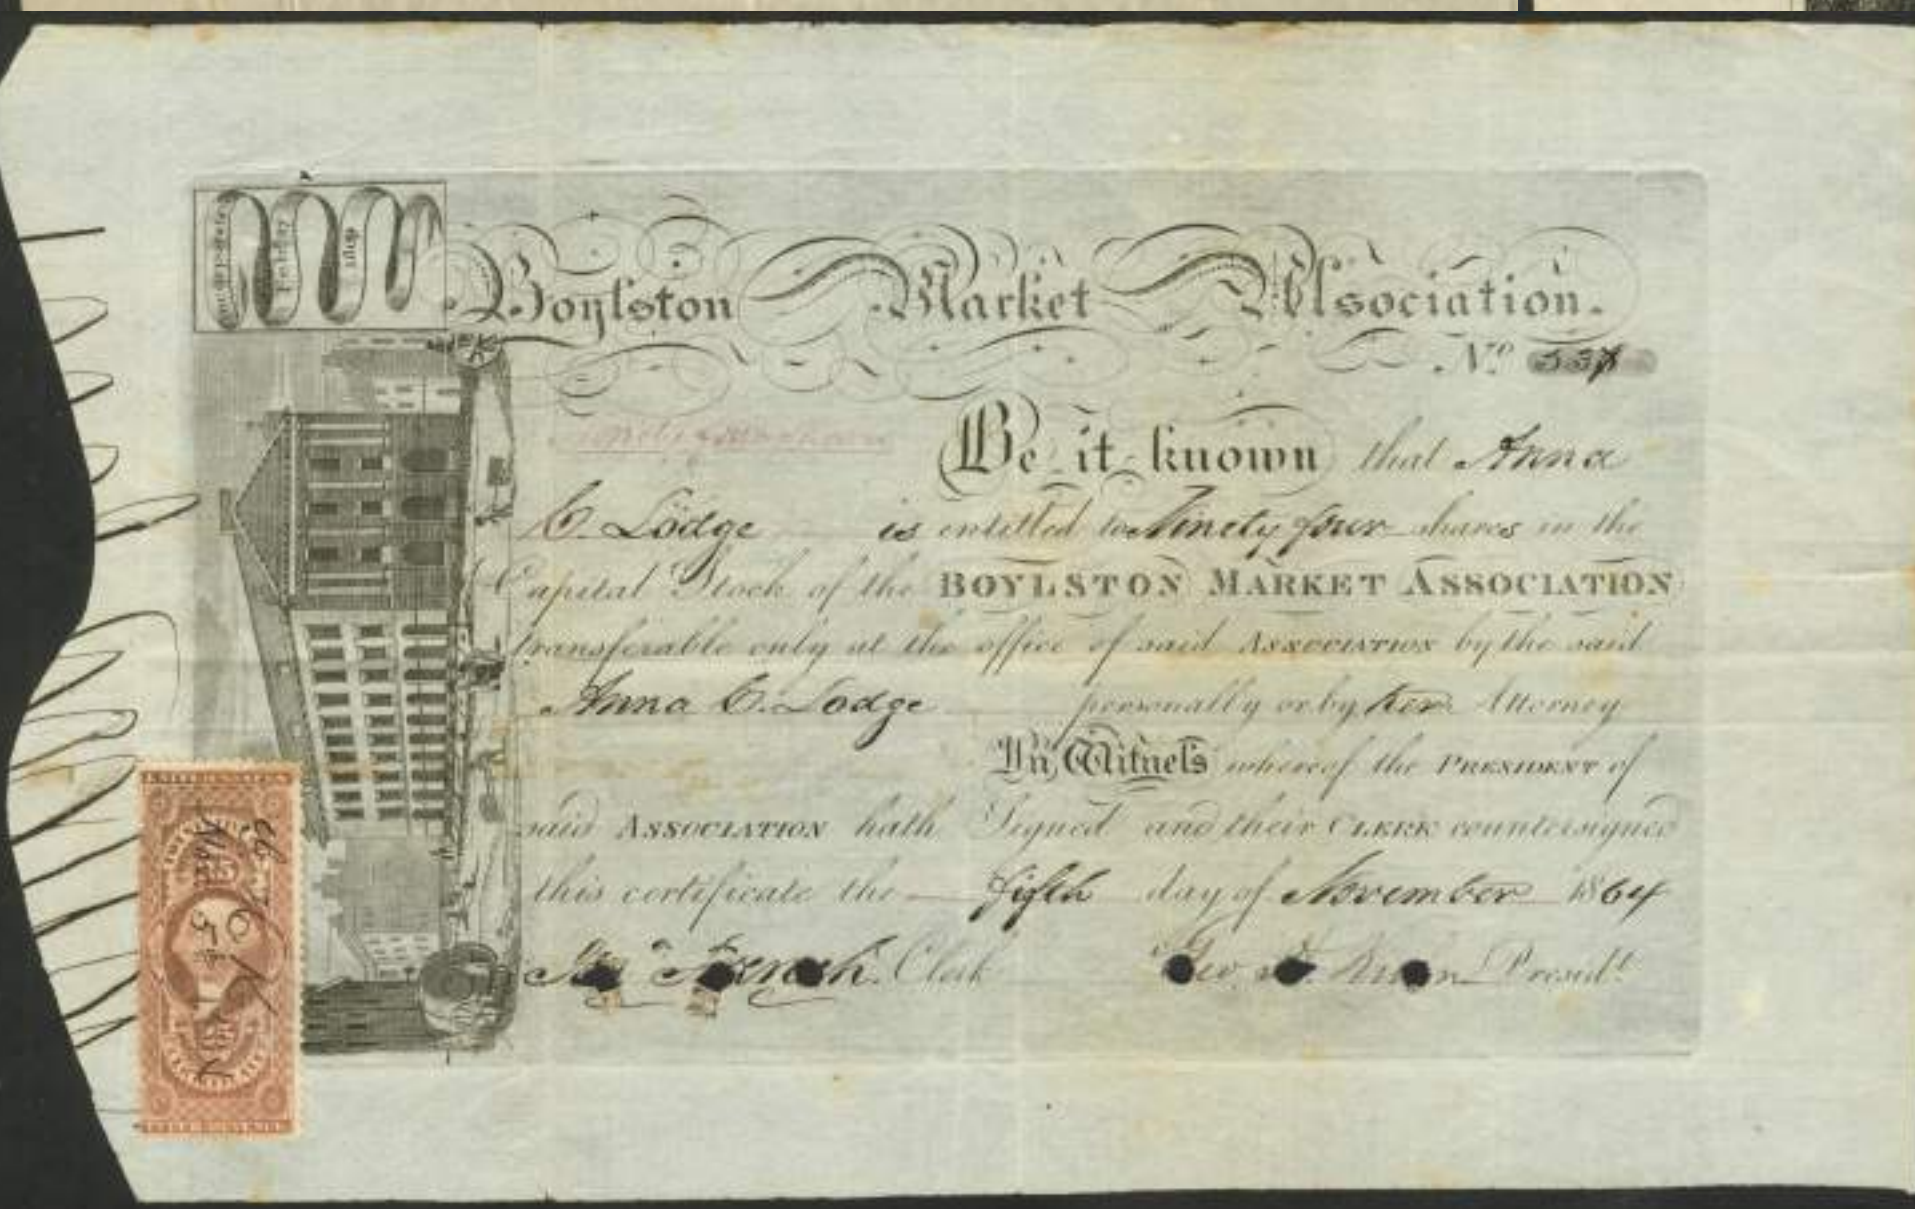 Boylston Market Association.
No 337
Be it known that Anna
C. Lodge is entitled to Ninety four shares in the
Capital Stock of the BOYLSTON MARKET ASSOCIATION
transferable only at the office of said ASSOCIATION by the said
Anna C. Lodge personally or by her Attorney
In Witness whereof the PRESIDENT of
said ASSOCIATION hath Signed and their CLERK countersigned
this certificate the fifth day of November 1864
French Clerk Geo. Presidt
Incorporated
February
1809
UNITED STATES
25
CERTIFICATE
Nov 5th